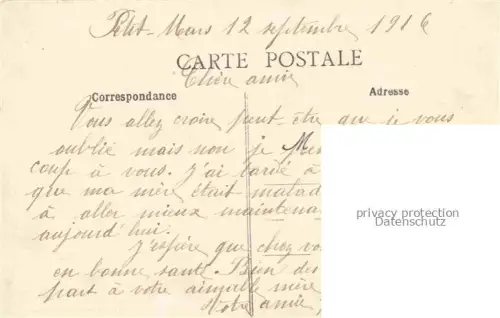 Petit-Mars 12 septembre 1916
CARTE POSTALE
Chère amie
Correspondance
Adresse
Vous allez croire peut-être que je vous
oublie mais non je
coup à vous. J'ai tardé à
que ma mère était malad
à aller mieux maintena
aujourd'hui.
J'espère que chez vo
en bonne santé. Bien des
part à votre aimable mère
Votre amie,
privacy protection
Datenschutz